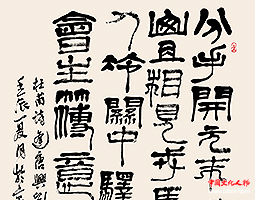 分手開元末
山且相見戎馬
人冷關中驛
會主簿意
杜甫詩逢唐興劉
壬辰夏月於
中国文化人物